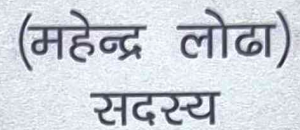 (महेन्द्र लोढा)
सदस्य